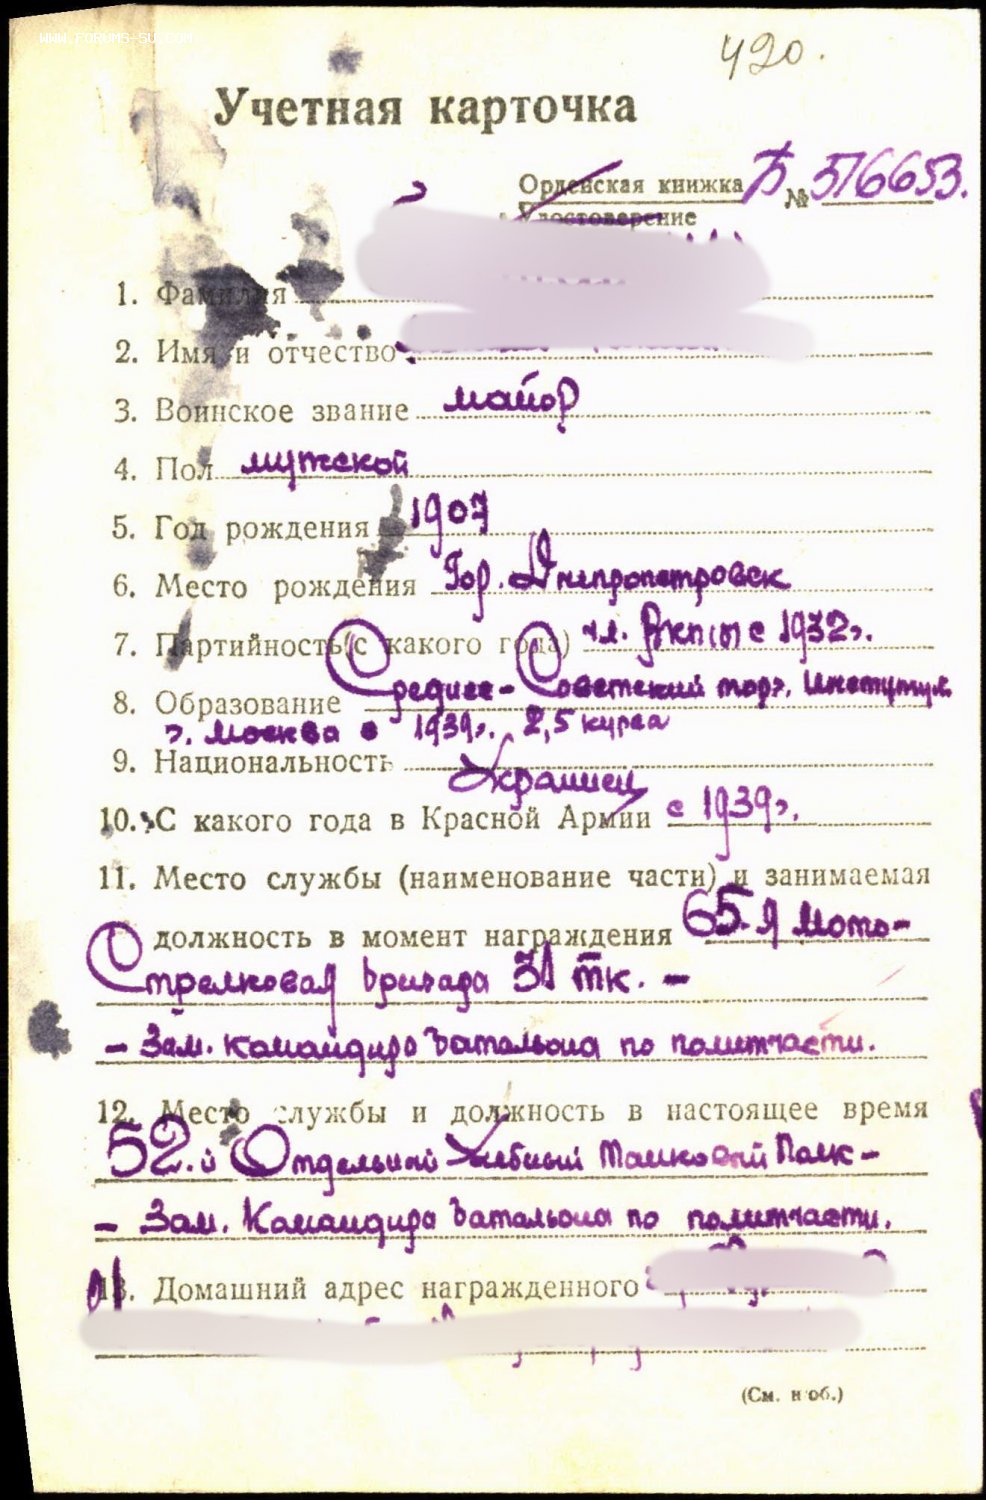 WWW.FORUMS-SU.COM
420.
Учетная карточка
Орденская книжка Б № 576653.
Удостоверение
1. Фамилия
2. Имя и отчество
3. Воинское звание майор
4. Пол мужской
5. Год рождения 1907
6. Место рождения Гор. Днепропетровск
7. Партийность (с какого года) чл. ВКП(б) с 1932 г.
8. Образование Среднее - Советский торг. Институт
г. Москва в 1939 г. 2,5 курса
9. Национальность Украинец
10. С какого года в Красной Армии с 1939 г.
11. Место службы (наименование части) и занимаемая
должность в момент награждения 65-я Мото-
Стрелковая бригада 31 тк. -
- Зам. командира батальона по политчасти.
12. Место службы и должность в настоящее время
52-й Отдельный Учебный Танковый Полк -
- Зам. Командира батальона по политчасти.
13. Домашний адрес награжденного
(См. н об.)